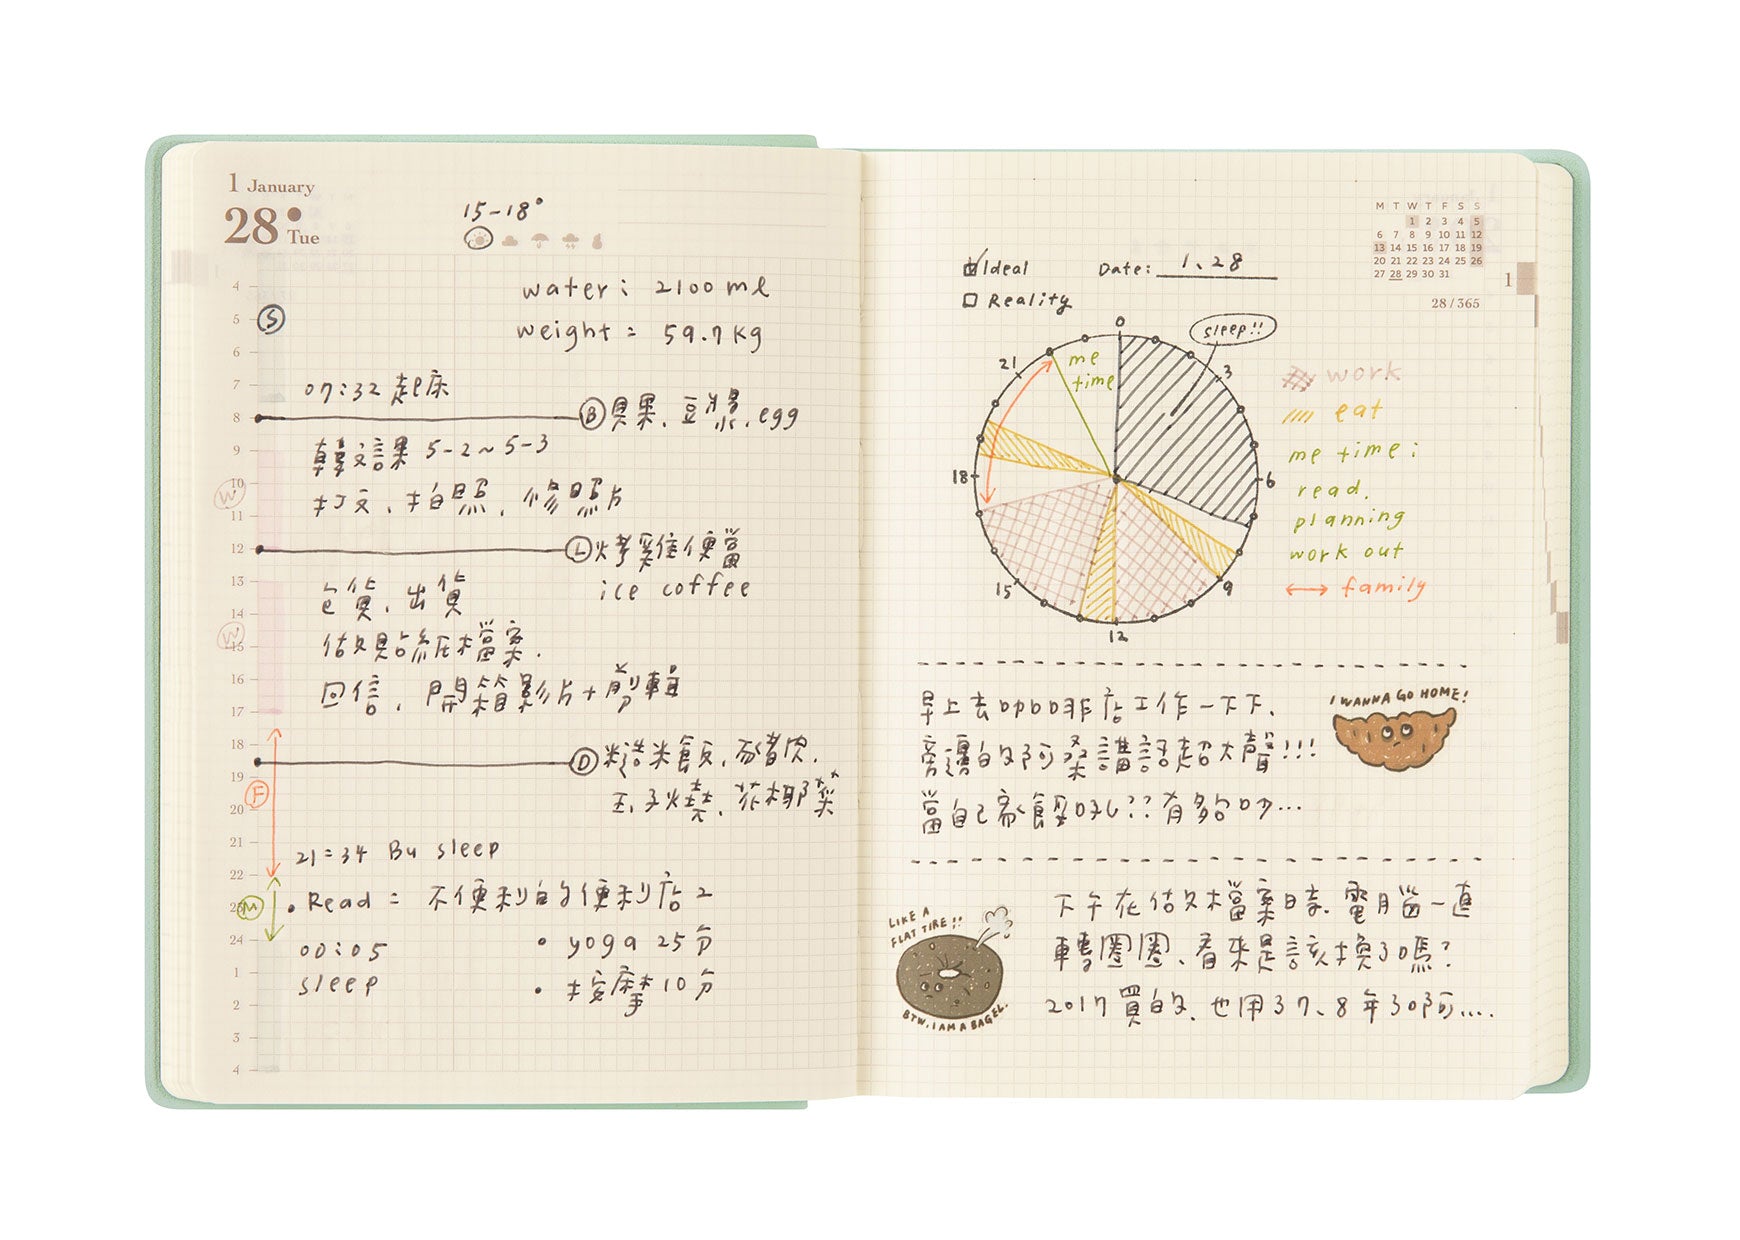 1 January
28 Tue
15-18°
water: 2100 ml
weight = 59.7 kg
4
5
S
6
7
07:32 起床
8
B 貝果、豆漿、egg
9
韓文課 5-2~5-3
10
W
打文、拍照、修照片
11
12
L 烤雞便當
ice coffee
13
包貨、出貨
14
W
15
做貼紙檔案.
16
回信、開箱影片+剪輯
17
18
D 糙米飯、豬肉、
19
F
20
玉子燒、花椰菜
21
21:34 Bu sleep
22
M
23
• Read = 不便利的便利店2
24
00:05
• yoga 25分
1
sleep
• 按摩10分
2
3
4
M T W T F S S
1 2 3 4 5
6 7 8 9 10 11 12
13 14 15 16 17 18 19
20 21 22 23 24 25 26
27 28 29 30 31
1
28/365
Ideal
Date: 1、28
Reality
0
sleep!!
3
6
9
12
15
18
21
me
time
work
eat
me time:
read.
planning
work out
family
早上去咖啡店工作一下下、
旁邊的阿桑講話超大聲!!!
當自己家餒?? 有夠吵...
I WANNA GO HOME!
下午在做檔案時、電腦一直
轉圈圈、看來是該換了嗎?
2017買的、也用了7、8年了啊....
LIKE A
FLAT TIRE!!
BTW, I AM A BAGEL.